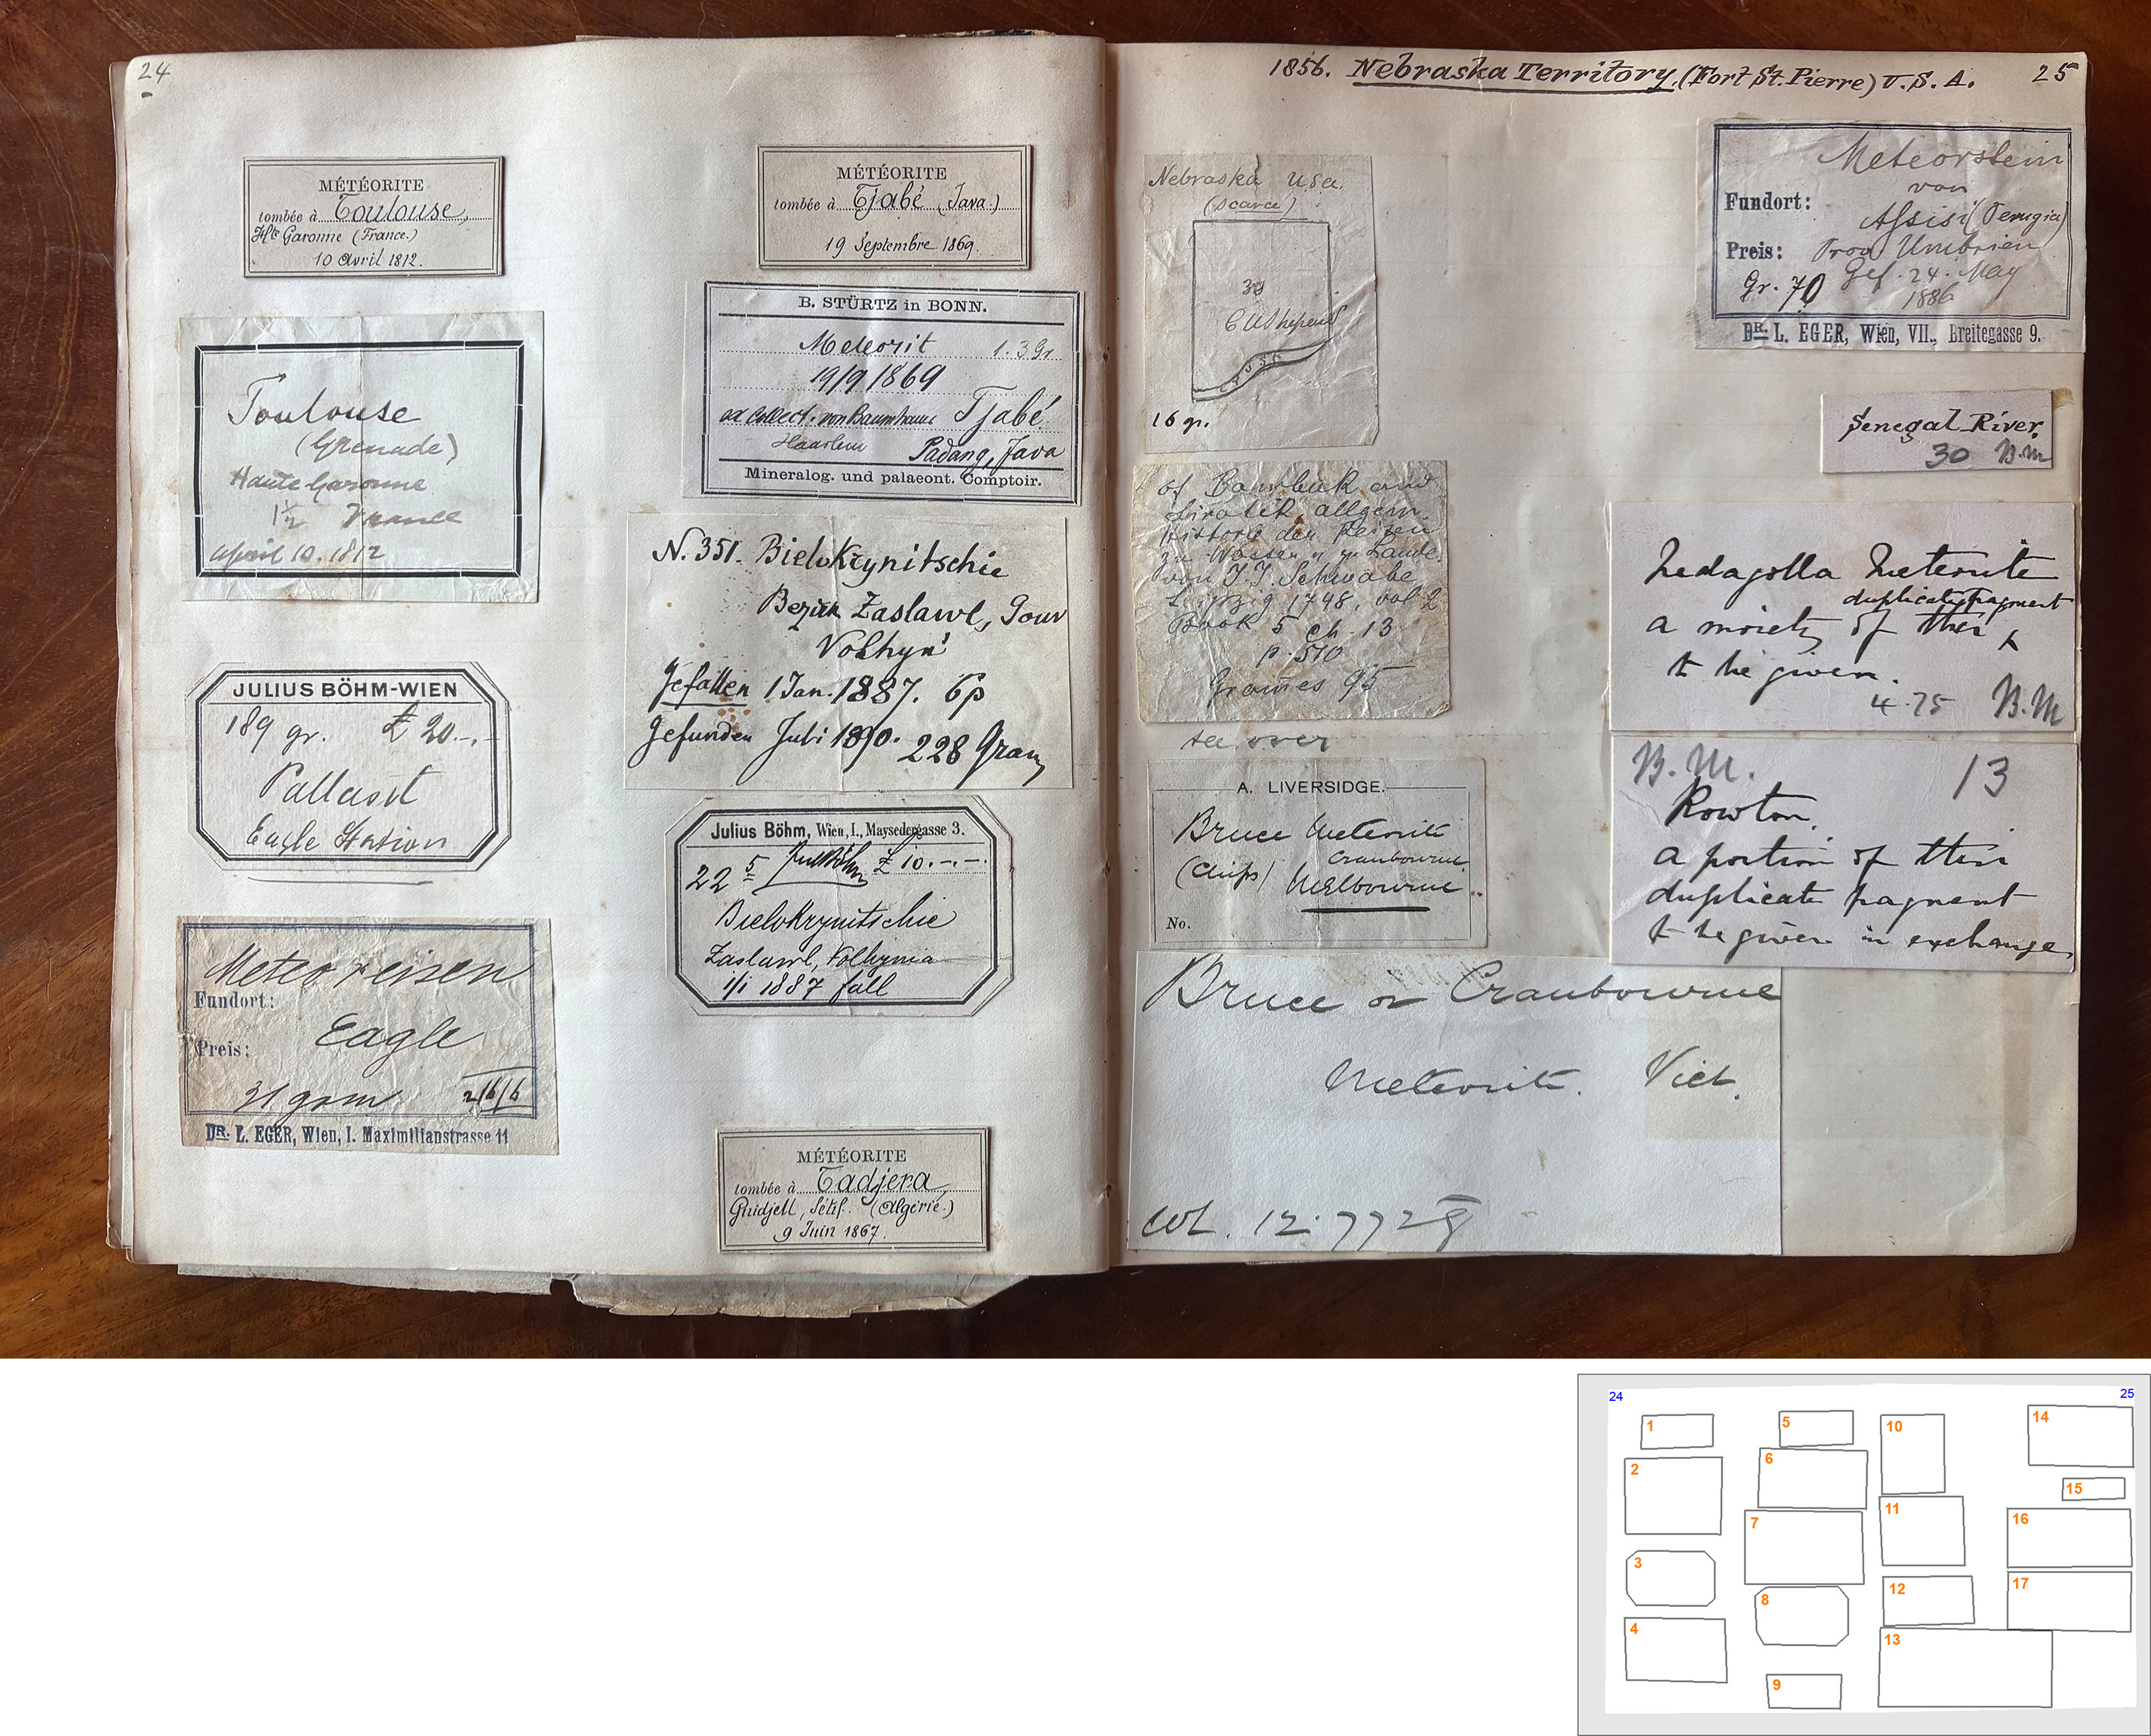 24
MÉTÉORITE
tombée à Toulouse,
Hte Garonne (France.)
10 Avril 1812.
Toulouse
(Grenade)
Haute Garonne
1½ France
April 10. 1812
JULIUS BÖHM-WIEN
189 gr. £ 20.-.-
Pallasit
Eagle Station
Meteoreisen
Fundort:
Eagle
Preis:
31 grm 2/6/6
DR. L. EGER, Wien, I. Maximilianstrasse 11
MÉTÉORITE
tombée à Tjabé (Java.)
19 Septembre 1869.
B. STÜRTZ in BONN.
Meteorit 1.3 Gr.
19/9 1869
ex collect. von Baumhauer Tjabé
Haarlem Padang, Java
Mineralog. und palaeont. Comptoir.
N. 351. Bielokrynitschie
Bezirk Zaslawl, Gouv
Volhyn
Gefallen 1 Jan. 1887. 6p
Gefunden Juli 1890. 228 Gram
Julius Böhm, Wien, I., Maysedergasse 3.
22 5 Jul Böhm £ 10.-.-.
Bielokrynitschie
Zaslawl, Volhynia
1/1 1887 fall
MÉTÉORITE
tombée à Tadjera
Guidjell, Sétif. (Algérie.)
9 Juin 1867.
1856. Nebraska Territory. (Fort St. Pierre) U.S.A. 25
Nebraska U.S.A.
(scarce)
16 gr.
of Bambuk and
allgem.
Historie der Reisen
zu Wasser u zu Lande
von J.J. Schwabe
Leipzig 1748, vol 2
Book 5 ch. 13
p. 510
Grames 95
see over
A. LIVERSIDGE.
Bruce Meteorite
Cranbourne
(Chips) Melbourne
No.
Bruce or Cranbourne
Meteorite. Vict.
Wt. 12.772 g
Meteorstein
von
Fundort:
Assisi (Perugia)
Preis: Prov Umbrien
Gr. 70 Gef. 24. May
1886
DR. L. EGER, Wien, VII., Breitegasse 9.
Senegal River.
30 B.M
Nedagolla Meteorite
duplicate fragment
a moiety of this
to be given.
4.75 B.M
B.M. 13
Rowton.
a portion of this
duplicate fragment
to be given in exchange.
24
25
1
2
3
4
5
6
7
8
9
10
11
12
13
14
15
16
17